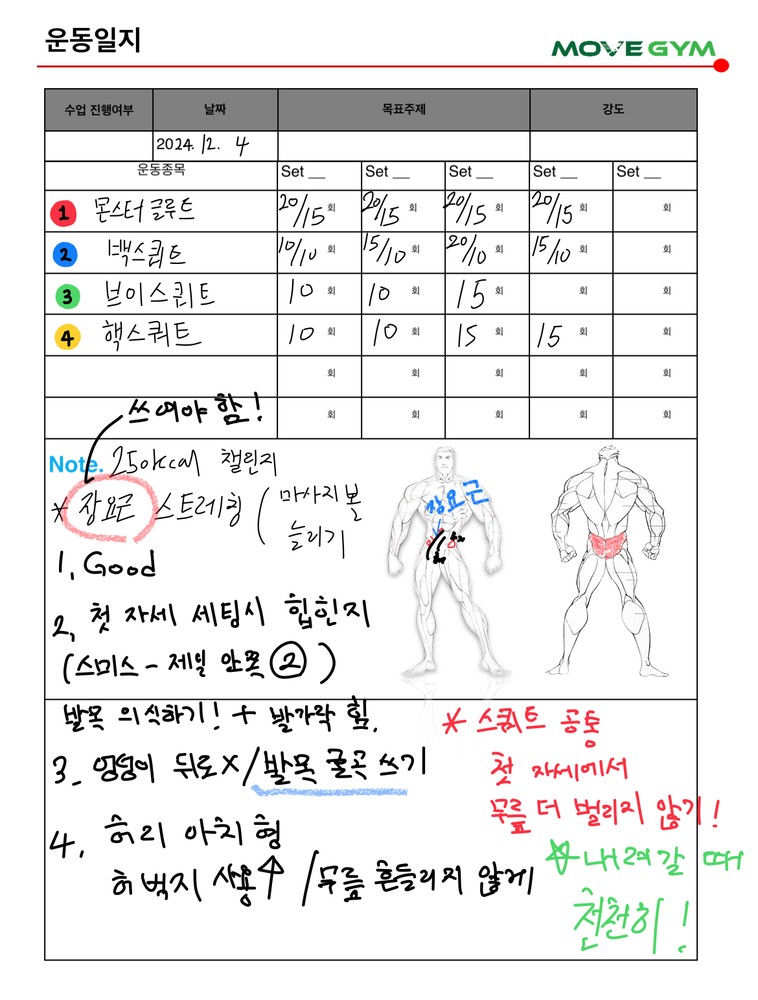 운동일지
MOVE GYM
수업 진행여부 날짜 목표주제 강도
2024. 12. 4
운동종목 Set __ Set __ Set __ Set __ Set __
1 몬스터글루트 20/15 회 20/15 회 20/15 회 20/15 회 회
2 백스쿼트 10/10 회 15/10 회 20/10 회 15/10 회 회
3 브이스쿼트 10 회 10 회 15 회 회 회
4 핵스쿼트 10 회 10 회 15 회 15 회 회
회 회 회 회 회
쓰여야 함! 회 회 회 회 회
Note. 250kcal 챌린지
* 장요근 스트레칭 ( 마사지볼
늘리기
장요근
1. Good
2. 첫 자세 세팅시 힙힌지
(스미스 - 제일 안쪽 ② )
발목 의식하기! + 발가락 힘.
* 스쿼트 공통
첫 자세에서
무릎 더 벌리지 않기!
3. 엉덩이 뒤로 X / 발목 굴곡 쓰기
4. 허리 아치형
허벅지 사용↑ / 무릎 흔들리지 않게
☆ 내려갈 때
천천히!